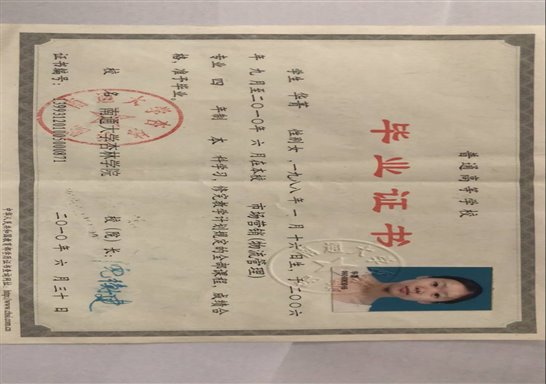 普通高等学校
毕业证书
学生 华菁 性别 女，一九八八年 一 月 十六 日生，于二〇〇六
年 九 月至二〇一〇年 六 月在本校 市场营销(物流管理)
专业 四 年制 本 科学习，修完教学计划规定的全部课程，成绩合
格，准予毕业。
校 名：南通大学杏林学院 校（院）长：
证书编号： 二〇一〇年 六 月三十日
中华人民共和国教育部学历证书查询网址：http://www.chsi.com.cn